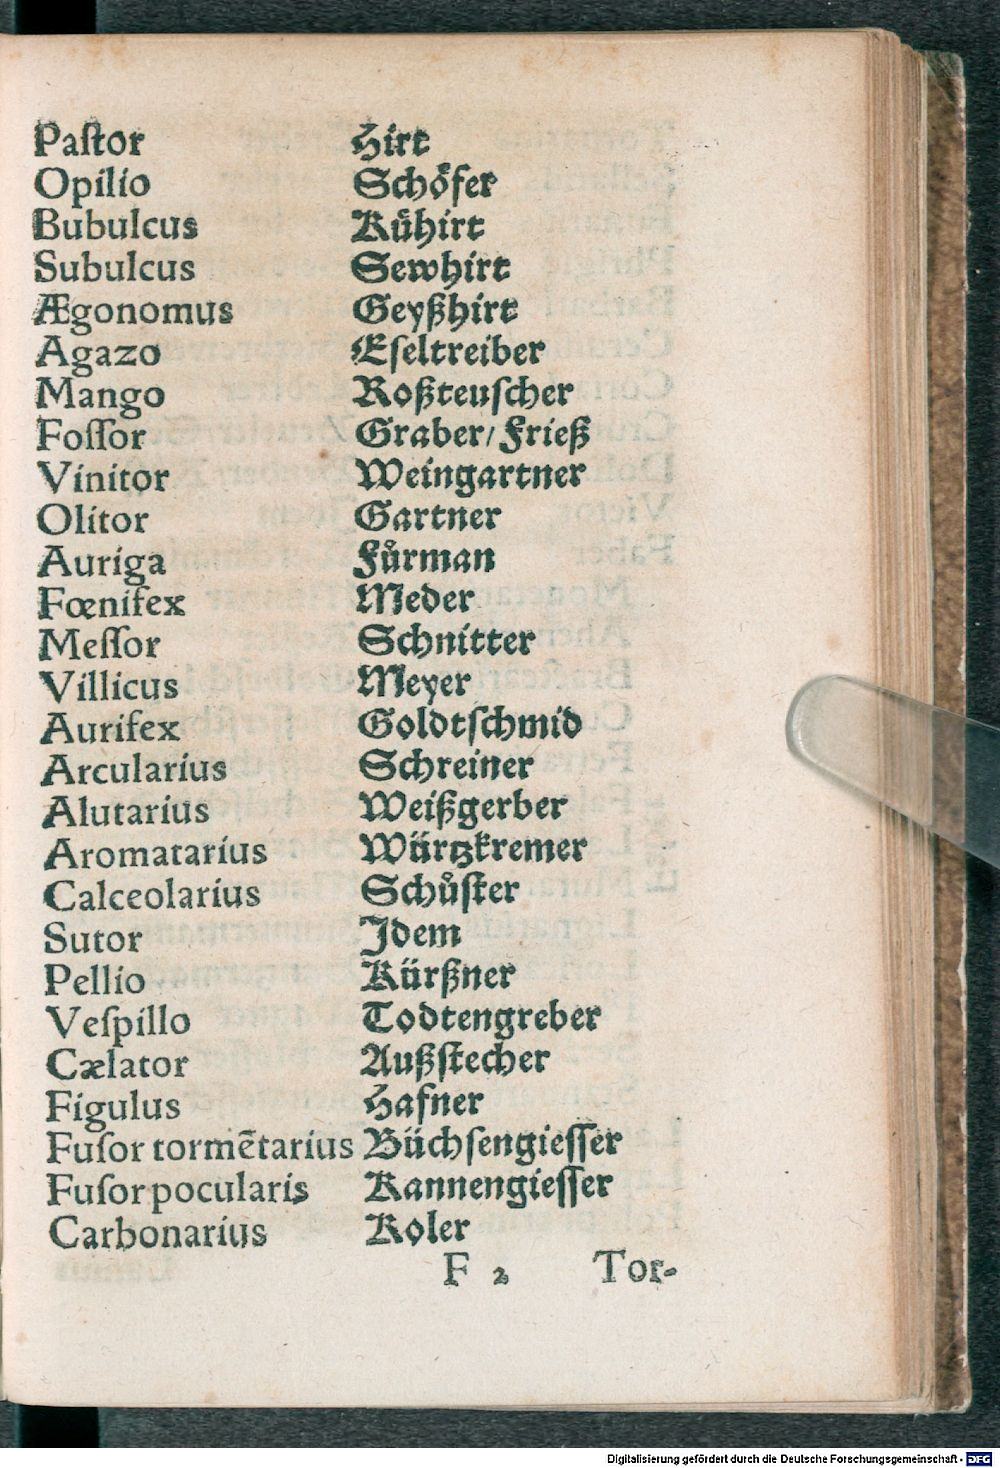 Paſtor Hirt
Opilio Schoͤfer
Bubulcus Kuͤhirt
Subulcus Sewhirt
Ægonomus Geyßhirt
Agazo Eſeltreiber
Mango Roßteuſcher
Foſſor Graber/ Frieß
Vinitor Weingartner
Olitor Gartner
Auriga Fuͦrman
Fœnifex Meder
Meſſor Schnitter
Villicus Meyer
Aurifex Goldtſchmid
Arcularius Schreiner
Alutarius Weißgerber
Aromatarius Würtzkremer
Calceolarius Schuͦſter
Sutor Idem
Pellio Kürßner
Veſpillo Todtengreber
Cælator Außſtecher
Figulus Hafner
Fuſor tormẽtarius Büchſengieſſer
Fuſor pocularis Kannengieſſer
Carbonarius Koler
F 2 Tor-
Digitalisierung gefördert durch die Deutsche Forschungsgemeinschaft - DFG